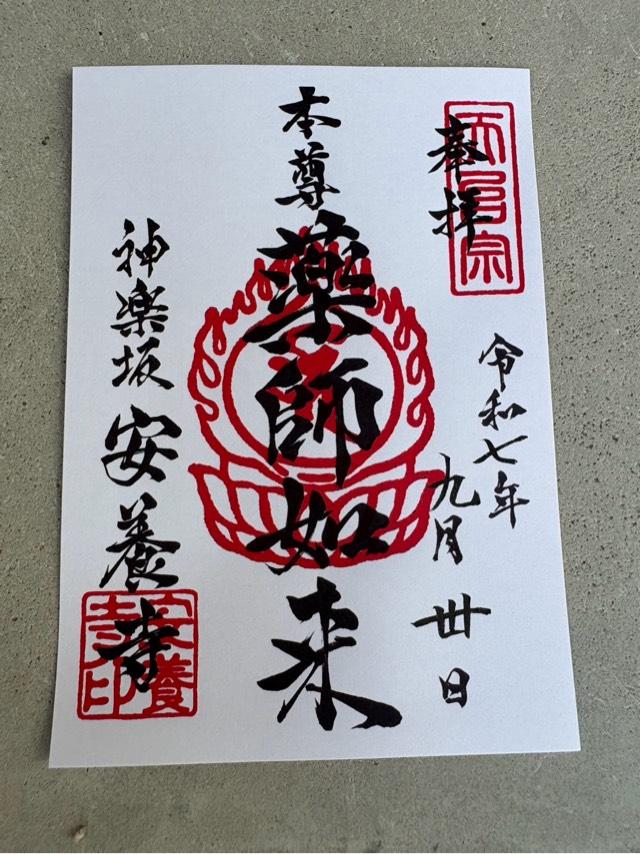 奉拝
天台宗
令和七年
九月
丗日
本尊
薬師如来
神楽坂
安養寺
安養寺印